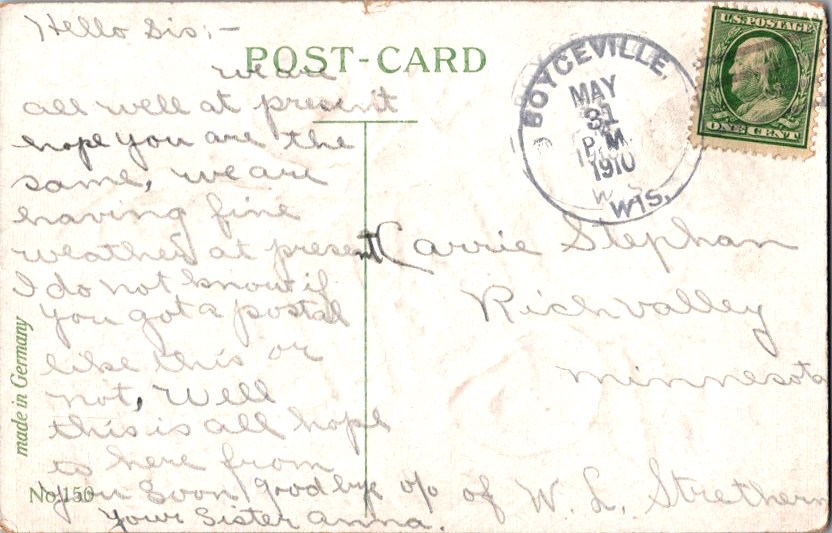 Hello Sis:-
POST-CARD
we are
all well at present
hope you are the
same, we are
having fine
weather at present
I do not know if
you got a postal
like this or
not, Well
this is all hope
to here from
you soon, good bye
Your Sister Anna.
made in Germany
No. 150
BOYCEVILLE,
MAY
31
P.M.
1910
WIS.
U.S. POSTAGE
ONE CENT
Carrie Stephan
Richvalley
Minnesota
c/o of W. L. Strethern